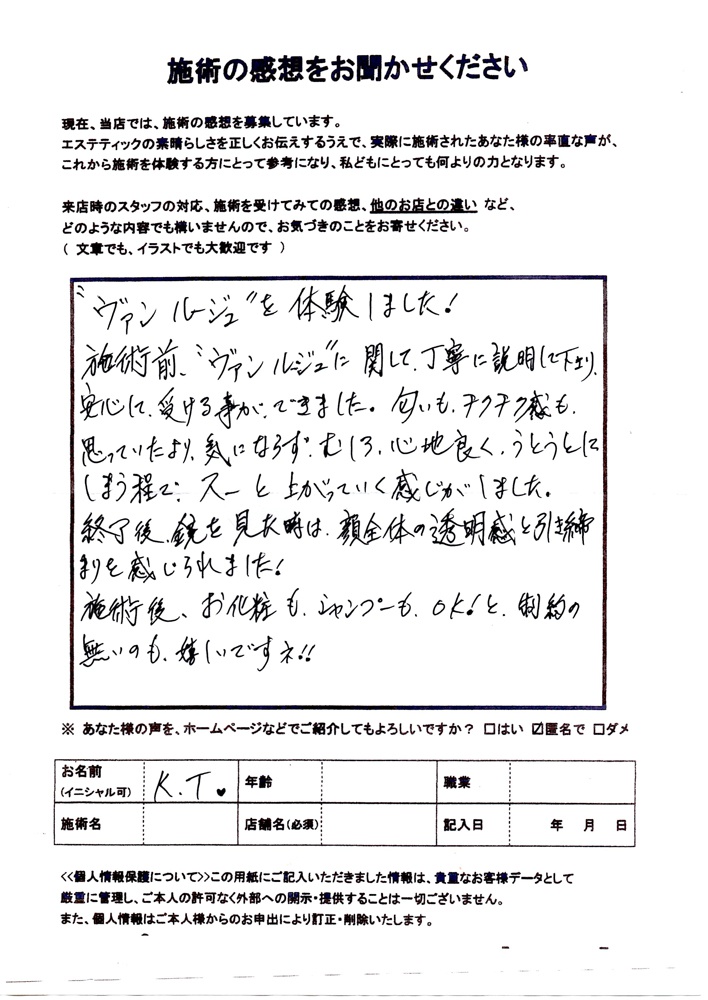 施術の感想をお聞かせください
現在、当店では、施術の感想を募集しています。
エステティックの素晴らしさを正しくお伝えするうえで、実際に施術されたあなた様の率直な声が、
これから施術を体験する方にとって参考になり、私どもにとっても何よりの力となります。
来店時のスタッフの対応、施術を受けてみての感想、他のお店との違い など、
どのような内容でも構いませんので、お気づきのことをお寄せください。
( 文章でも、イラストでも大歓迎です )
〝ヴァン ルージュ〟を 体験しました!
施術前、〝ヴァンルージュ〟に 関して、丁寧に説明して下さり、
安心して、受ける事が、できました。匂いも、チクチク感も、
思っていたより、気にならず、むしろ、心地良く、うとうとに
しまう程で、スーと 上がっていく感じがしました。
終了後、鏡を見た時は、顔全体の透明感と引き締
まりを感じられました!
施術後、お化粧も、シャンプーも、OK!と、制約の
無いのも、嬉しいですネ!!
※ あなた様の声を、ホームページなどでご紹介してもよろしいですか? □はい ☑匿名で □ダメ
お名前 (イニシャル可) K.T♥ 年齢 職業
施術名 店舗名(必須) 記入日 年 月 日
<<個人情報保護について>>この用紙にご記入いただきました情報は、貴重なお客様データとして
厳重に管理し、ご本人の許可なく外部への開示・提供することは一切ございません。
また、個人情報はご本人様からのお申出により訂正・削除いたします。